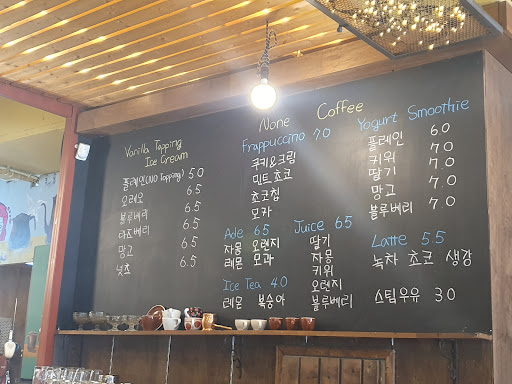 Vanilla Topping
Ice Cream
플레인(NO Topping) 5.0
오레오 6.5
블루베리 6.5
라즈베리 6.5
망고 6.5
넛츠 6.5
None Coffee
Frappuccino 7.0
쿠키&크림
민트 초코
초코칩
모카
Ade 6.5
자몽 오렌지
레몬 모과
Ice Tea 4.0
레몬 복숭아
Juice 6.5
딸기
자몽
키위
오렌지
블루베리
Yogurt Smoothie
플레인 6.0
키위 7.0
딸기 7.0
망고 7.0
블루베리 7.0
Latte 5.5
녹차 초코 생강
스팀우유 3.0